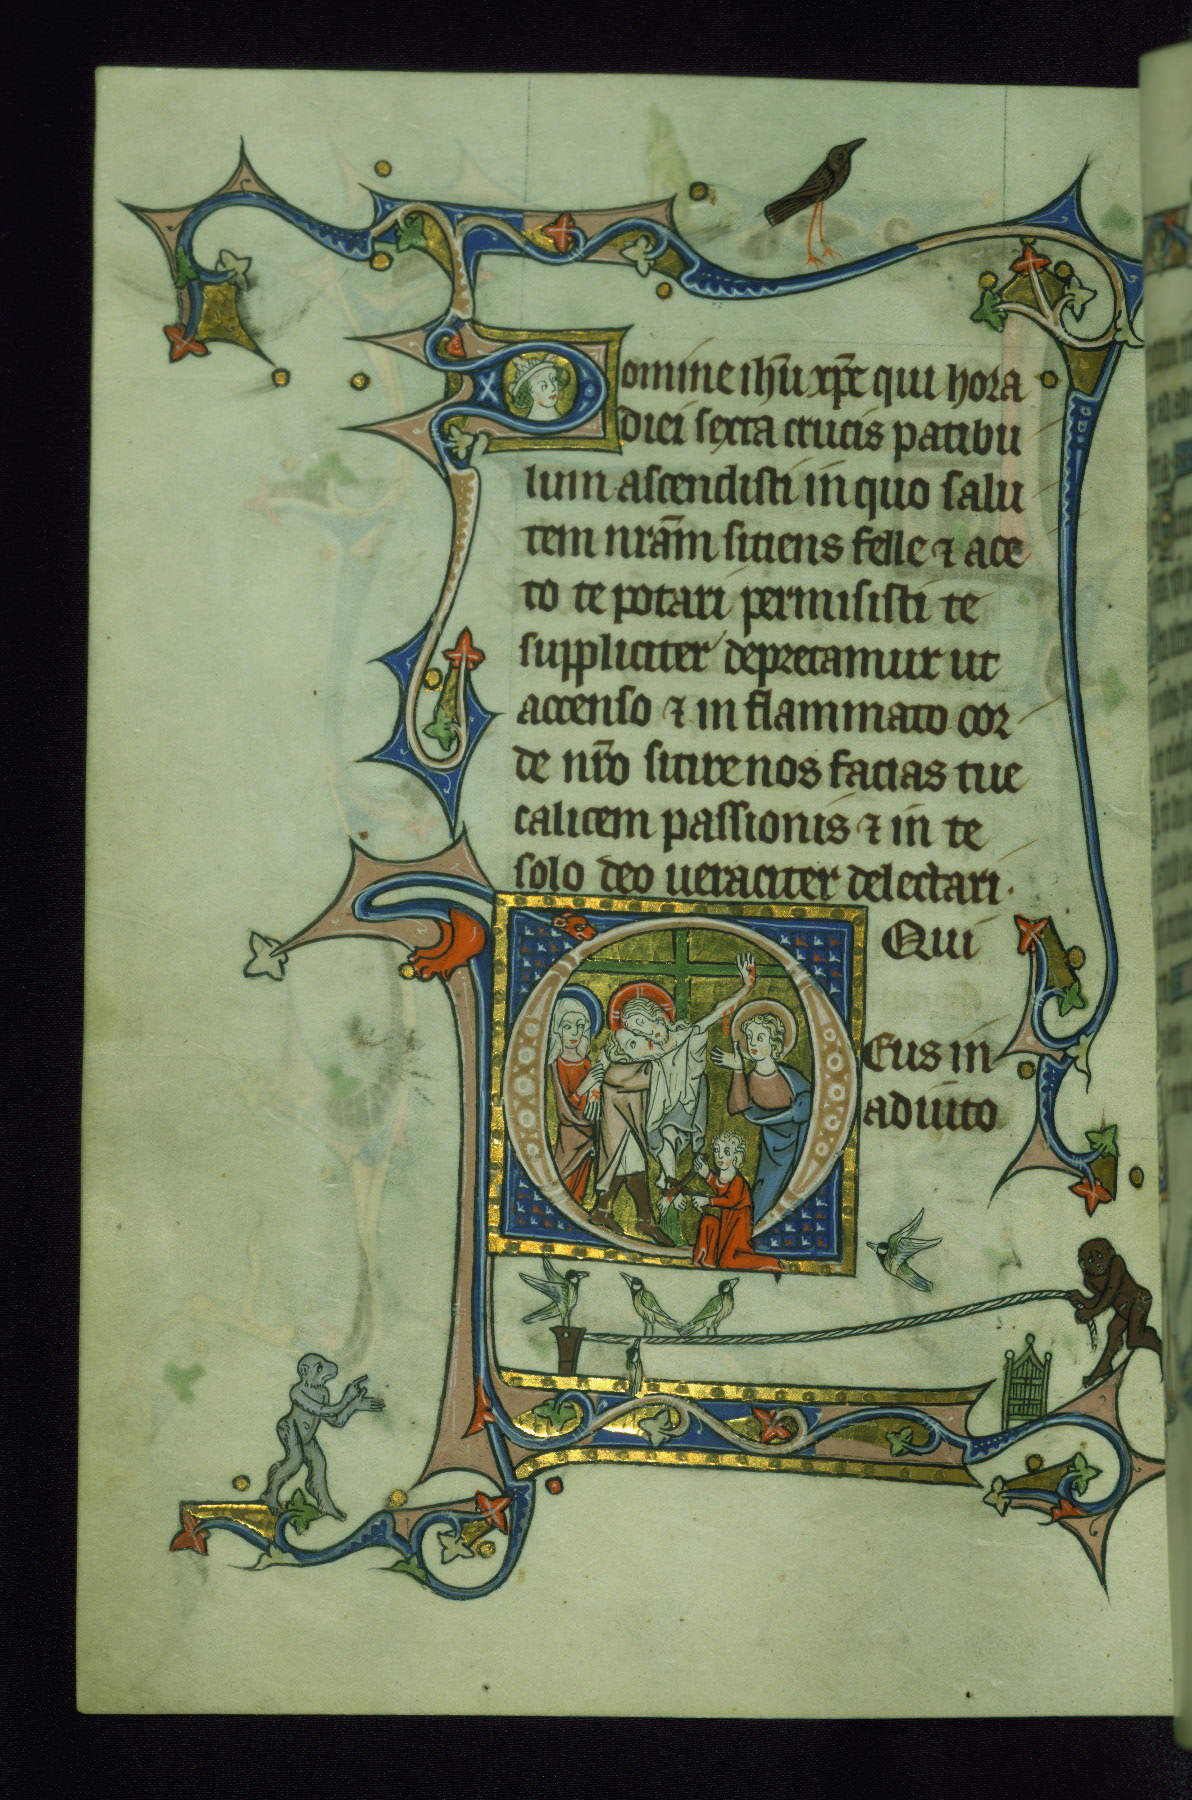 Domine ihū xp̄e qui hora
diei sexta crucis patibu
lum ascendisti in quo salu
tem nr̄am sitiens felle ⁊ ace
to te potari permisisti te
suppliciter deprecamur ut
accenso ⁊ in flammato cor
de nr̄o sitire nos facias tue
calicem passionis ⁊ in te
solo deo ueraciter delectari.
Qui
Deus in
adiuto